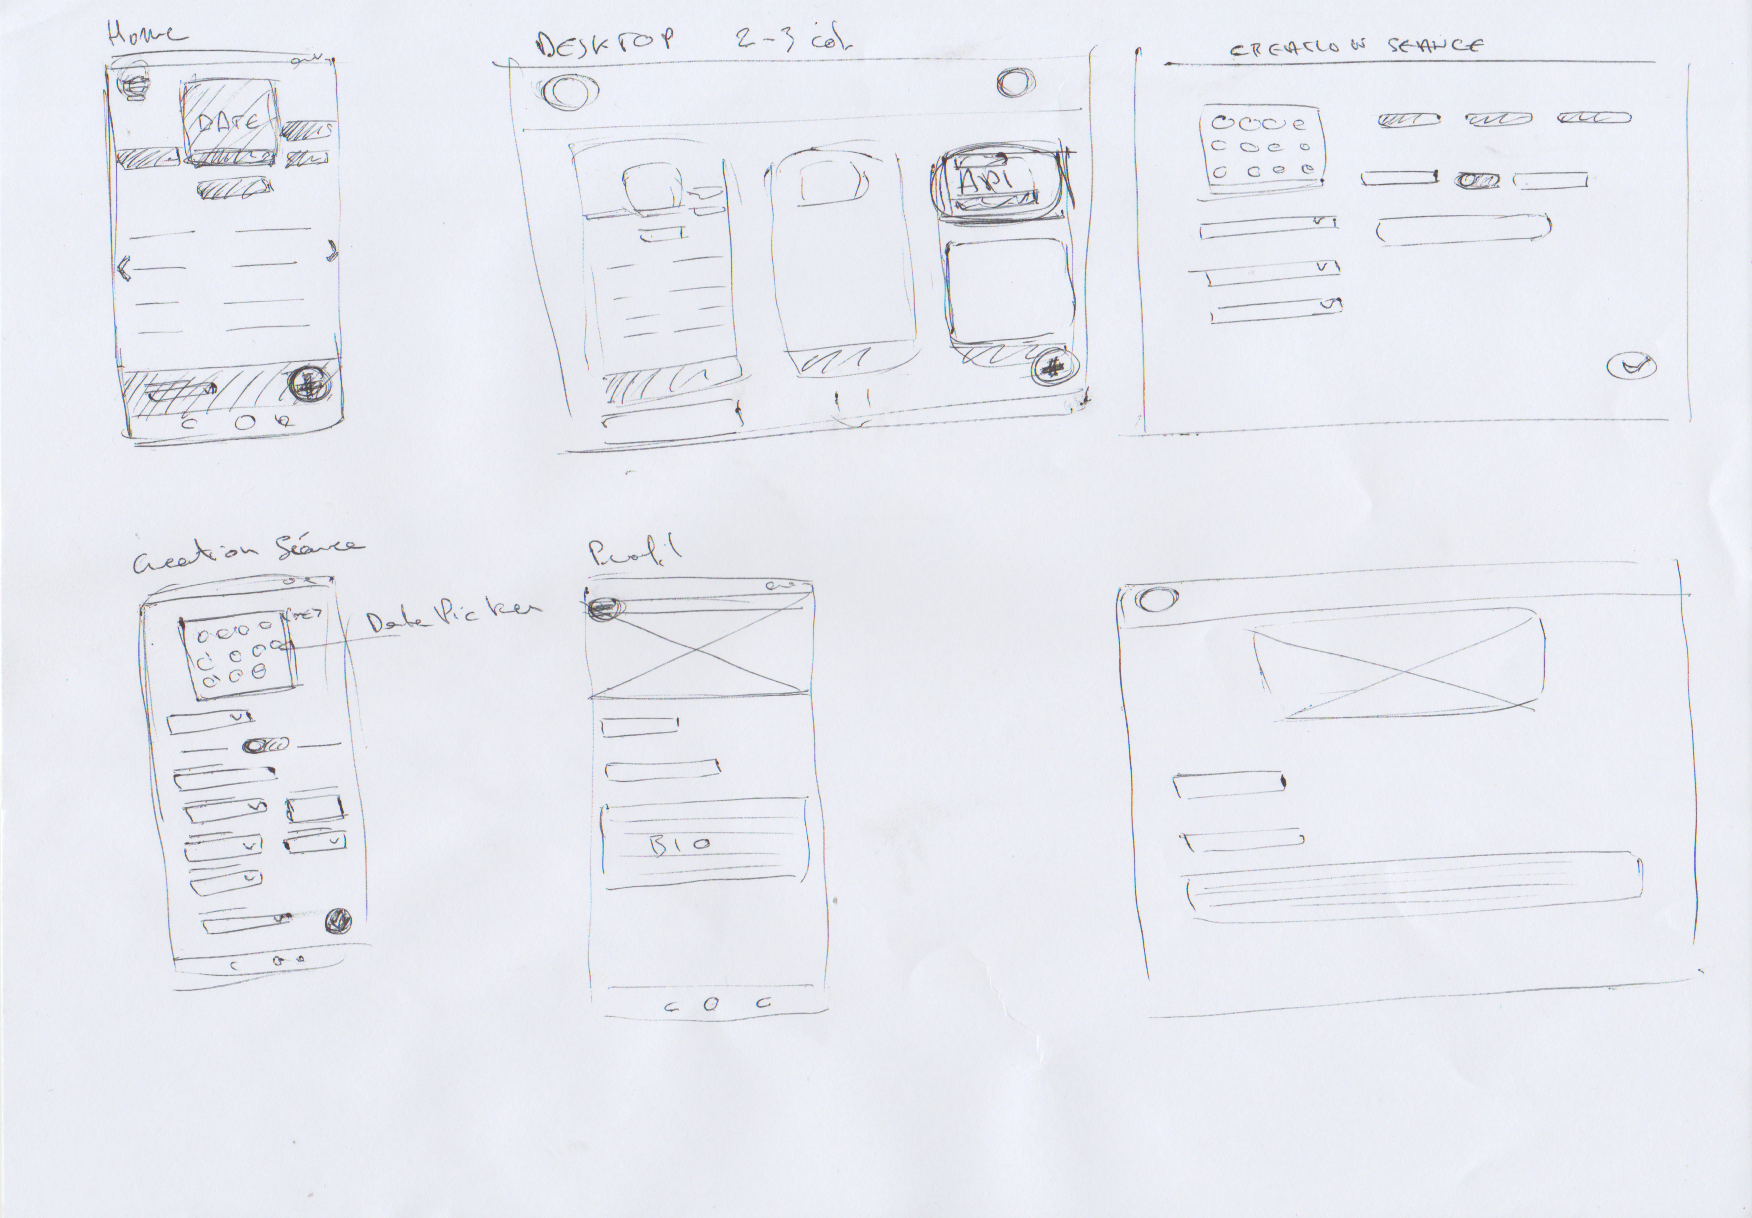 Home
DESKTOP 2-3 col.
CREATION SEANCE
DATE
API
Creation Séance
Date Picker
Profil
BIO